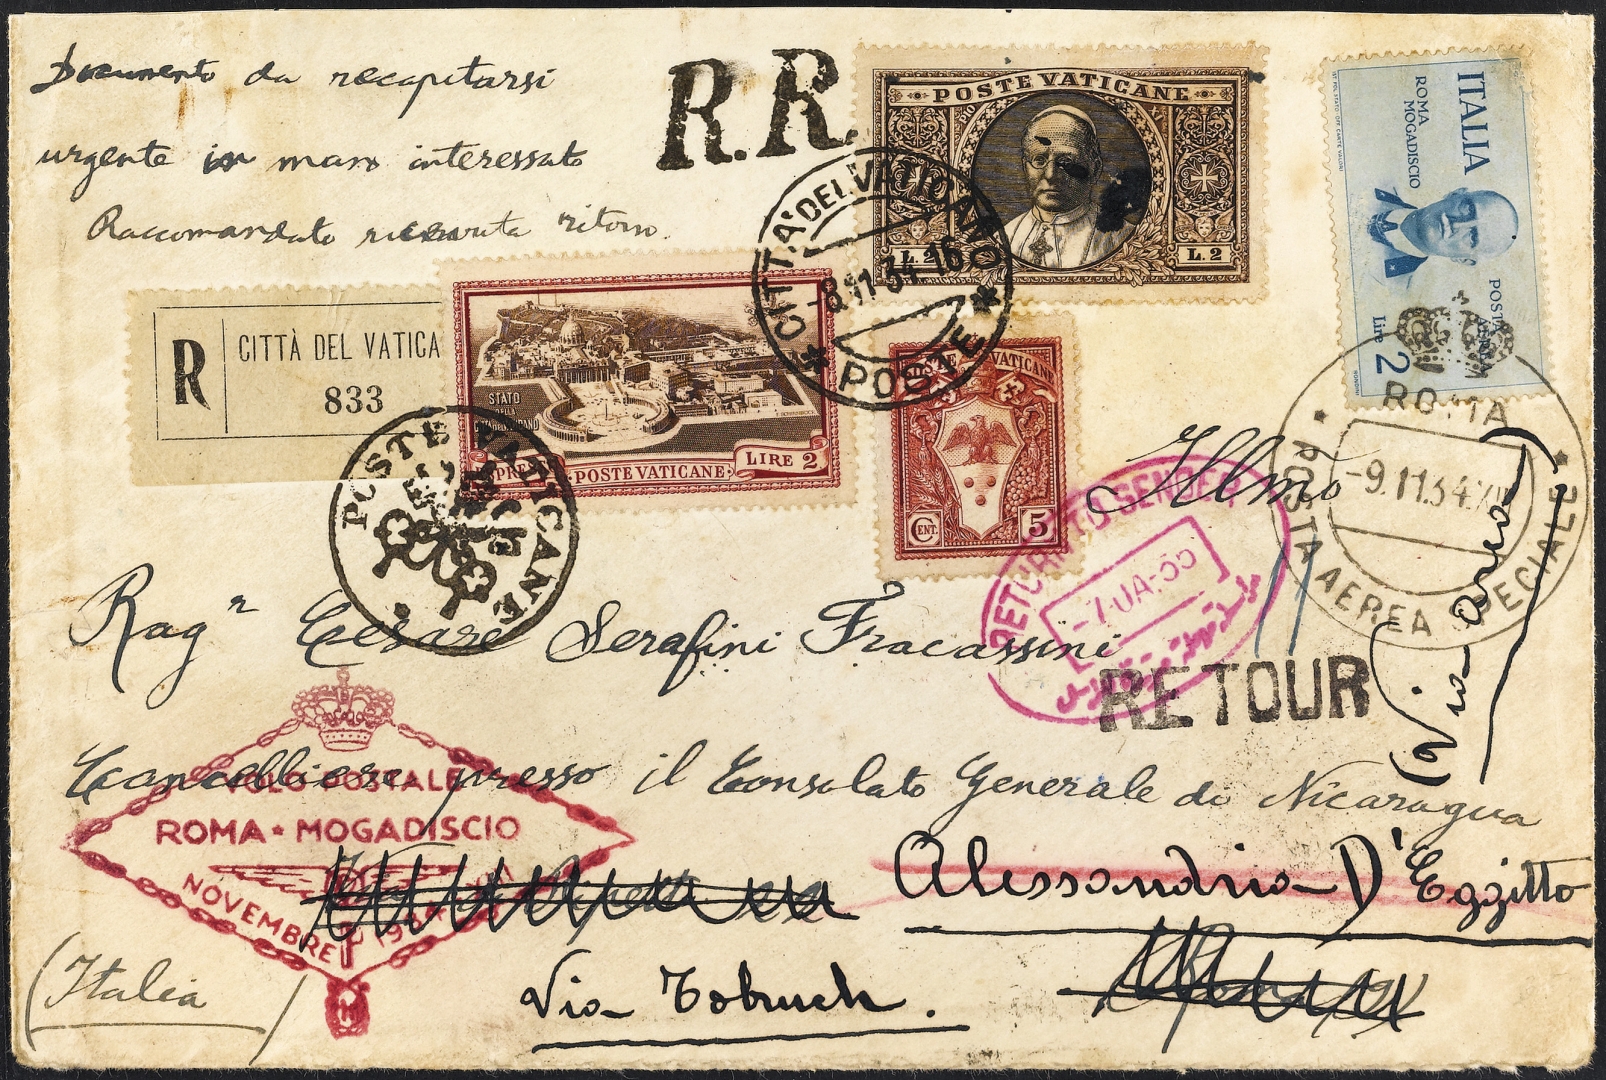 Documento da recapitarsi
urgente in mano interessato
Raccomandato ricevuta ritorno
R.R.
POSTE VATICANE
L. 2
L. 2
ITALIA
ROMA
MOGADISCIO
POSTA AEREA
Lire 2
R
CITTÀ DEL VATICA
833
STATO
DELLA
CITTÀ DEL VATICANO
ESPRES
POSTE VATICANE
LIRE 2
CITTA' DEL VATICANO
8.11.34.16
POSTE
POSTE VATICANE
CENT. 5
POSTE VATICANE
ROMA
-9.11.34
POSTA AEREA SPECIALE
RETURN TO SENDER
-7 JA-35
RETOUR
Illmo
Rag.r Cesare Serafini Fracassini
Cancelliere presso il Consolato Generale di Nicaragua
Alessandria D'Eggitto
Via Tobruch.
(Via aerea)
(Italia)
VOLO POSTALE
ROMA ★ MOGADISCIO
NOVEMBRE 1934